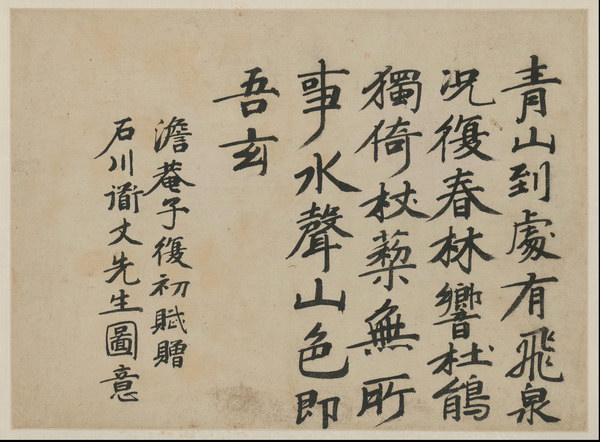 青山到處有飛泉
况復春林響杜鵑
獨倚杖藜無所
事水聲山色即
吾玄
澹菴子復初賦贈
石川衜丈先生圖意